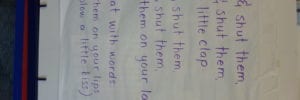 & shut them,
& shut them,
little clap
shut them,
shut them
them on your la
at with words
them on your lips
low a little kiss)